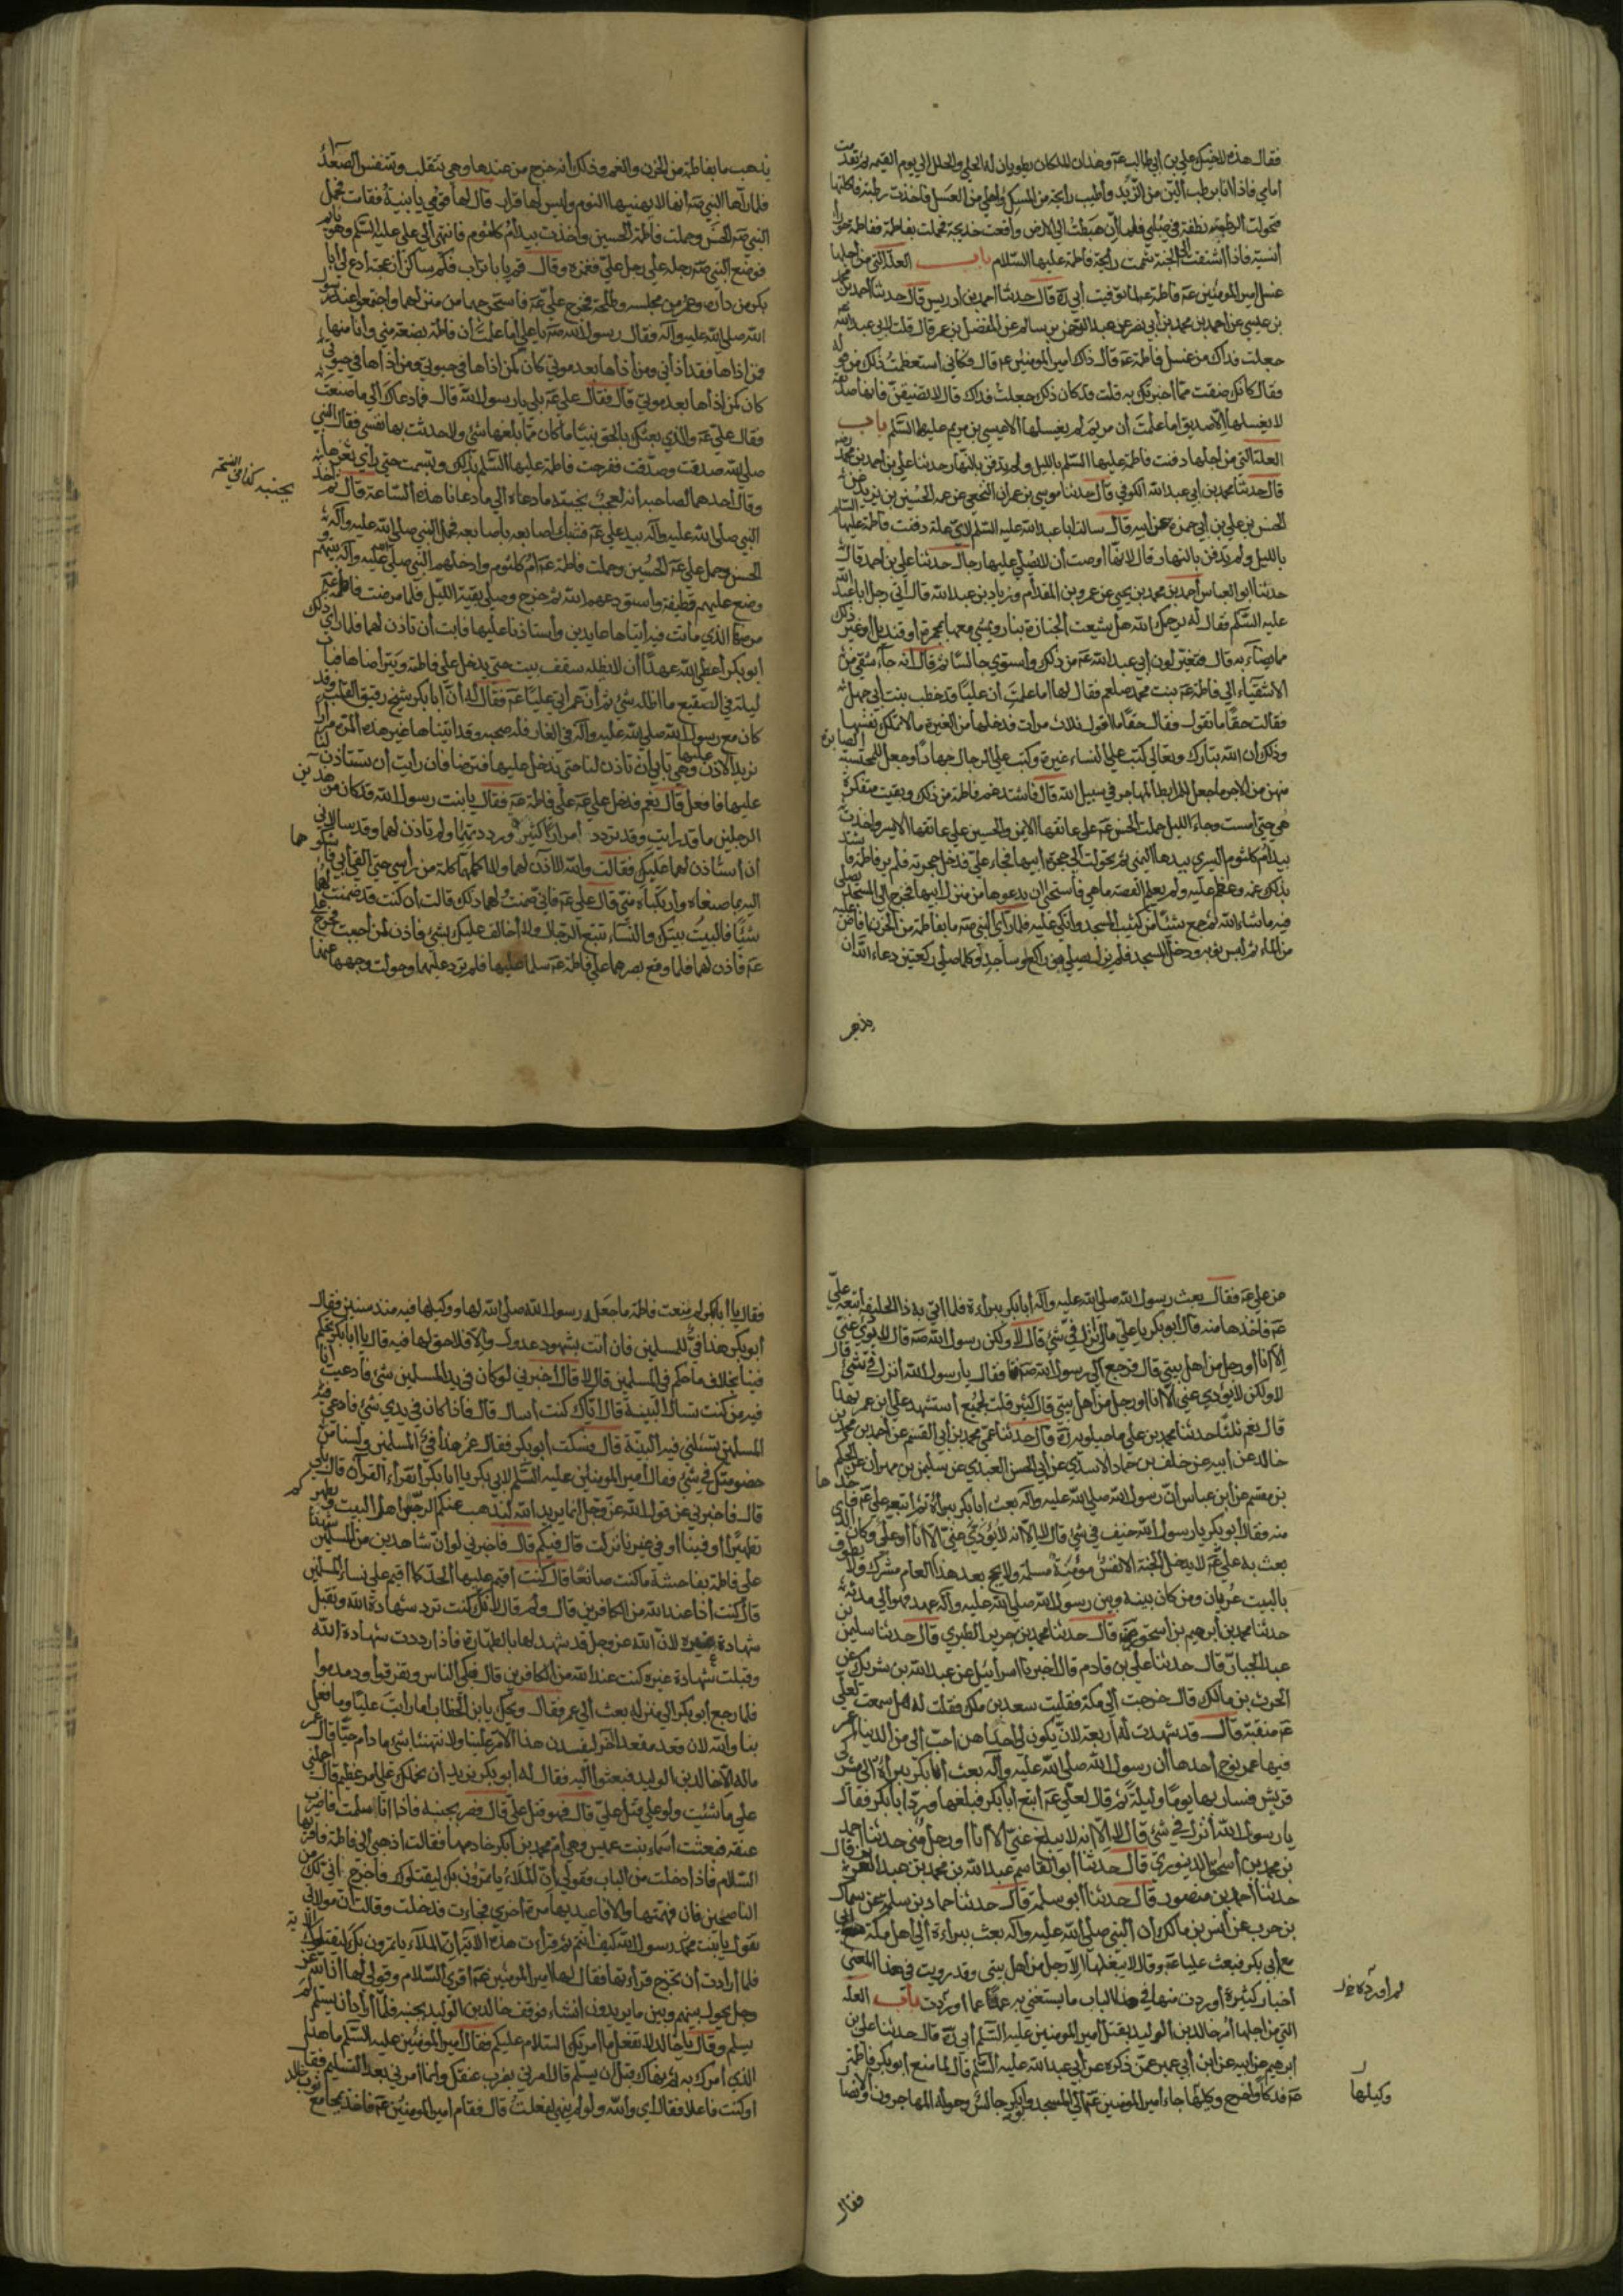 فقال هذه لاخيك علي بن أبي طالب عم وهذان الملكان يطويان له الحلي والحلل إلى يوم القيمة ثم تقدمت
أمامي فاذا انا برطب ألين من الزبد وأطيب رائحة من المسك وأحلى من العسل فأخذت رطبة فأكلتها
فتحولت الرطبة نطفة في صلبي فلما ان هبطت إلى الارض واقعت خديجة فحملت بفاطمة ففاطمة حوراء
أنسية فاذا اشتقت إلى الجنة شممت رائحة فاطمة عليها السلام باب العلة التي من اجلها
غسل امير المؤمنين عم فاطمة عم لما توفيت أبي ره قال حدثنا احمد بن ادريس قال حدثنا احمد بن محمد
بن عيسى عن احمد بن محمد بن أبي نصر عن عبد الرحمن بن سالم عن المفضل بن عمر قال قلت لابي عبد الله
جعلت فداك من غسل فاطمة عم قال ذاك امير المؤمنين عم قال فكأني استعظمت ذلك من قوله
فقال كانك ضقت مما اخبرتك به قلت قد كان ذلك جعلت فداك قال لا تضيقن فانها صديقة
لا يغسلها الا صديق اما علمت أن مريم لم يغسلها الا عيسى بن مريم عليهما السلم باب
العلة التي من اجلها دفنت فاطمة عليها السلم بالليل ولم تدفن بالنهار حدثنا علي بن احمد بن محمد
قال حدثنا محمد بن ابي عبد الله الكوفي قال حدثنا موسى بن عمران النخعي عن عمه الحسين بن يزيد عن
الحسن بن علي بن أبي حمزة عن ابيه قال سالت ابا عبد الله عليه السلم لاي علة دفنت فاطمة عليها السلم
بالليل ولم تدفن بالنهار قال لانها أوصت أن لا يصلي عليها رجال حدثنا علي بن احمد قال
حدثنا ابو العباس أحمد بن محمد بن يحيى عن عمرو بن المقدام وزياد بن عبد الله قال أتى رجل ابا عبد الله
عليه السلم فقال له يرحمك الله هل يشيعت الجنازة بنار ويمشي معها بمجمرة أو قنديل أو غير ذلك
مما يضاء به قال فتغير لون ابي عبد الله عم من ذلك واستوى جالسا ثم قال انه جاء شقي من
الاشقياء الى فاطمة عم بنت محمد صلعم فقال لها اما علمت أن عليا قد خطب بنت أبي جهل
فقالت حقا ما تقول فقال حقا ما اقول ثلاث مرات فدخلها من الغيرة ما لا تملك نفسها
وذلك أن الله تبارك وتعالى كتب على النساء غيرة وكتب على الرجال جهادا وجعل للمحتسبة الصابرة
منهن من الاجر ما جعل للمرابط المهاجر في سبيل الله قال فاشتد غم فاطمة من ذلك وبقيت متفكرة
هي حتى أمست وجاء الليل حملت الحسن عم على عاتقها الايمن والحسين على عاتقها الايسر واخذت
بيد أم كلثوم اليسرى بيدها اليمنى ثم تحولت الى حجرة أبيها فجاء علي فدخل حجرته فلم ير فاطمة فاشتد
بذلك غمه وعظم عليه ولم يعلم القصة ما هي فاستحى ان يدعوها من منزل ابيها فخرج الى المسجد يصلي
فيه ما شاء الله ثم جمع شيئا من كثيب المسجد واتكى عليه فلما رأى النبي صم ما بفاطمة من الحزن افاض عليه
من الماء ثم لبس ثوبه ودخل المسجد فلم يزل يصلي بين راكع وساجد وكلما صلى ركعتين دعاء الله ان
يذهب
يذهب ما بفاطمة من الحزن والغم وذلك أنه خرج من عندها وهي تتقلب وتتنفس الصعداء
فلما رآها النبي صم أنها لا يهنيها النوم وليس لها قرار قال لها قومي يا بنية فقامت فحمل
النبي صم الحسن وحملت فاطمة الحسين وأخذت بيد أم كلثوم فانتهى الى علي عليه السلم وهو نايم
فوضع النبي صم رجله على رجل علي فغمزه وقال قم يا با تراب فكم ساكن أزعجته ادع لي أبا
بكر من داره وعمر من مجلسه وطلحة فخرج علي عم فاستخرجهما من منزلهما واجتمعوا عند رسول
الله صلى الله عليه وآله فقال رسول الله صم يا علي اما علمت أن فاطمة بضعة مني وأنا منها
فمن اذاها فقد أذاني ومن أذاها بعد موتي كان كمن اذاها في حيوتي ومن اذاها في حيوتي
كان كمن اذاها بعد موتي قال فقال علي عم بلى يا رسول الله قال فما دعاك الى ما صنعت
فقال علي عم والذي بعثك بالحق نبيا ما كان مما بلغها شئ ولا حدثت بها نفسي فقال النبي
صلى الله صدقت وصدقت ففرحت فاطمة عليها السلم بذلك وتبسمت حتى رأى ثغرها
وقال احدهما لصاحبه انه لعجب بجنبه ما دعاه الى ما دعانا هذه الساعة قال ثم أخذ
بجنبه كذا في النسخة
النبي صلى الله عليه وآله بيد علي عم فشبك أصابعه باصابعه فحمل النبي صلى الله عليه وآله
الحسن وحمل علي عم الحسين وحملت فاطمة عم أم كلثوم وادخلهم النبي صلى الله عليه وآله بيتهم
ووضع عليهم قطيفة واستودعهم الله ثم خرج وصلى بقية الليل فلما مرضت فاطمة عم
مرضها الذي ماتت فيه أتياها عايدين واستاذنا عليها فابت أن تاذن لهما فلما رأى ذلك
أبو بكر أعطى الله عهدا أن لا يظله سقف بيت حتى يدخل على فاطمة ويتراضاها فبات
ليلة في الصقيع ما اظله شئ ثم أن عمر اتى عليا عم فقال له أن أبا بكر شيخ رقيق القلب وقد
كان مع رسول الله صلى الله عليه وآله في الغار فله صحبه وقد اتيناها غير هذه المرة مرارا
نريد الاذن عليها وهي تابى أن تاذن لنا حتى ندخل عليها فنتراضا فان رايت أن تستاذن لنا
عليها فافعل قال نعم فدخل علي عم على فاطمة عم فقال يا بنت رسول الله قد كان من هذين
الرجلين ما قد رايت وقد تردد امرارا كثيرة ورددتهما ولم تاذن لهما وقد سالاني
ان أستاذن لهما عليك فقالت والله لا آذن لهما ولا اكلمهما كلمة من راسي حتى القى أبي فاشكوهما
اليه بما صنعاه وارتكباه مني قال علي عم فاني ضمنت لهما ذلك قالت أن كنت قد ضمنت لهما
شيئا فالبيت بيتك والنساء تتبع الرجال ولا أخالف عليك بشئ فاذن لمن أحببت فخرج علي
عم فاذن لهما فلما وقع بصرهما على فاطمة عم سلما عليها فلم ترد عليهما وحولت وجهها عنهما
عن علي عم فقال بعث رسول الله صلى الله عليه وآله أبا بكر ببراءة فلما اتى به ذا الحليفة أتبعه علي
عم فاخذها منه قال ابو بكر يا علي مالي أنزل في شئ قال لا ولكن رسول الله صم قال لا يؤدي عني
الا أنا أو رجل من أهل بيتي قال فرجع الى رسول الله صم فقال يا رسول الله أنزل في شئ قال
لا ولكن لا يؤدي عني الا أنا او رجل من أهل بيتي قال كثير قلت لجميع أستشهد على ابن عمر بهذا
قال نعم ثلثا حدثنا محمد بن علي ماجيلويه ره قال حدثنا عمي محمد بن أبي القسم عن أحمد بن محمد بن
خالد عن أبيه عن خلف بن حماد الاسدي عن أبي الحسن العبدي عن سليمن بن مهران عن الحكم
بن مقسم عن ابن عباس أن رسول الله صلى الله عليه وآله بعث أبا بكر ببراءة ثم اتبعه علي عم فاخذها
منه فقال أبو بكر يا رسول الله خيف في شئ قال لا الا انه لا يؤدي عني الا أنا أو علي وكان الذي
بعث به علي عم لا يدخل الجنة الا نفس مؤمنة مسلمة ولا يحج بعد هذا العام مشرك ولا يطوف
بالبيت عريان ومن كان بينه وبين رسول الله صلى الله عليه وآله عهد فهو الى مدته
حدثنا محمد بن أبرهيم بن أسحق قال حدثنا محمد بن جرير الطبري قال حدثنا سليمن بن
عبد الجبار قال حدثنا علي بن قادم قال أخبرنا اسرائيل عن عبد الله بن شريك عن
الحرث بن مالك قال خرجت الى مكة فلقيت سعد بن ملك فقلت له هل سمعت لعلي
عم منقبة قال قد شهدت له أربعة لان يكون لي احديهن احب الي من الدنيا اعمر
فيها عمر نوح أحدها أن رسول الله صلى الله عليه وآله بعث أبا بكر ببراءة الى مشركي
قريش فسار بها يوما وليلة ثم قال لعلي عم اتبع أبا بكر فبلغها ورد أبا بكر فقال
يا رسول الله أنزل في شئ قال لا الا انه لا يبلغ عني الا انا او رجل مني حدثنا احمد
بن محمد بن أسحق الدينوري قال حدثنا أبو القاسم عبد الله بن محمد بن عبد العزيز قال
حدثنا أحمد بن منصور قال حدثنا أبو سلمة قال حدثنا حماد بن سلمة عن سماك
بن حرب عن أنس بن مالك ان النبي صلى الله عليه وآله بعث ببراءة الى أهل مكة
مع أبي بكر فبعث عليا عم وقال لا يبلغها الا رجل من اهل بيتي وقد رويت في هذا المعنى
أخبار كثيرة أوردت منها في هذا الباب ما يستغنى به عما اوردت باب العلة
لم أورده خ
التي من اجلها أمر خالد بن الوليد بقتل أمير المؤمنين عليه السلم أبي ره قال حدثنا علي بن
ابرهيم عن ابيه عن ابن أبي عمير عمن ذكره عن أبي عبد الله عليه السلم قال لما منع ابو بكر فاطمة
عم فدكا وأخرج وكيلها جاء أمير المؤمنين عم الى المسجد وابو بكر جالس وحوله المهاجرون والانصار
وكيلها
فقال
فقال يا أبا بكر لم منعت فاطمة ما جعله رسول الله صلى الله لها ووكيلها فيه منذ سنين فقال
أبو بكر هذا فيئ للمسلمين فان أتت بشهود عدول والا فلا حق لها فيه قال يا ابا بكر تحكم
فينا بخلاف ما تحكم في المسلمين قال لا قال أخبرني لو كان في يد المسلمين شئ فادعيت أنا
فيه من كنت تسال البينة قال اياك كنت أسال قال فاذا كان في يدي شئ فادعى فيه
المسلمون تسئلني فيه البينة قال فسكت أبو بكر فقال عمر هذا فيئ المسلمين ولسنا من
خصومتك في شئ فقال أمير المؤمنين عليه السلم لابي بكر يا ابا بكر أتقراء القرآن قال بلى
قال فاخبرني عن قول الله عز وجل انما يريد الله ليذهب عنكم الرجس أهل البيت ويطهركم
تطهيرا أو فينا او في غيرنا نزلت قال فيكم قال فاخبرني لو ان شاهدين من المسلمين شهدا
على فاطمة بفاحشة ما كنت صانعا قال كنت أقيم عليها الحد كما أقيم على نساء المسلمين
قال كنت أذا عند الله من الكافرين قال ولم قال لانك كنت ترد شهادة الله وتقبل
شهادة غيره لان الله عز وجل قد شهد لها بالطهارة فاذا رددت شهادة الله
وقبلت شهادة غيره كنت عند الله من الكافرين قال فبكى الناس وتفرقوا ودمدموا
فلما رجع أبو بكر الى منزله بعث الى عمر فقال ويحك يا بن الخطاب اما رايت عليا وما فعل
بنا والله لان قعد مقعدا آخر ليفسدن هذا الامر علينا ولا نتهنئا بشئ ما دام حيا قال عمر
ماله الا خالد بن الوليد فبعثوا اليه فقال له أبو بكر نريد أن نحملك على امر عظيم قال احملني
على ما شئت ولو على قتل علي قال فهو قتل علي قال فصر بجنبه فاذا انا سلمت فاضرب
عنقه فبعثت أسماء بنت عميس وهي أم محمد بن أبي بكر خادمها فقالت أذهبي الى فاطمة فاقرئها
السلام فاذا دخلت من الباب فقولي أن الملاء ياتمرون بك ليقتلوك فاخرج اني لك من
الناصحين فان فهمتها والا فاعيديها مرة أخرى فجاءت فدخلت وقالت أن مولاتي
تقول يا بنت محمد رسول الله كيف أنتم ثم قرأت هذه الآية ان الملاء ياتمرون بك ليقتلوك الآية
فلما أرادت أن تخرج قرأتها فقال لها امير المؤمنين عم اقرئي السلام وقولي لها أن الله عز
وجل يحول بينهم وبين ما يريدون انشاء فوقف خالد بن الوليد بجنبه فلما أراد أن يسلم لم
يسلم وقال يا خالد لا تفعل ما امرتك السلام عليكم فقال أمير المؤمنين عليه السلم ما هذا
الذي أمرك به ثم نهاك قبل أن يسلم قال امرني بضرب عنقك وانما أمرني بعد التسليم فقال
اوكنت فاعلا فقال اي والله ولو لم ينهني لفعلت قال فقام أمير المؤمنين عم فاخذ بمجامع ثوب خالد